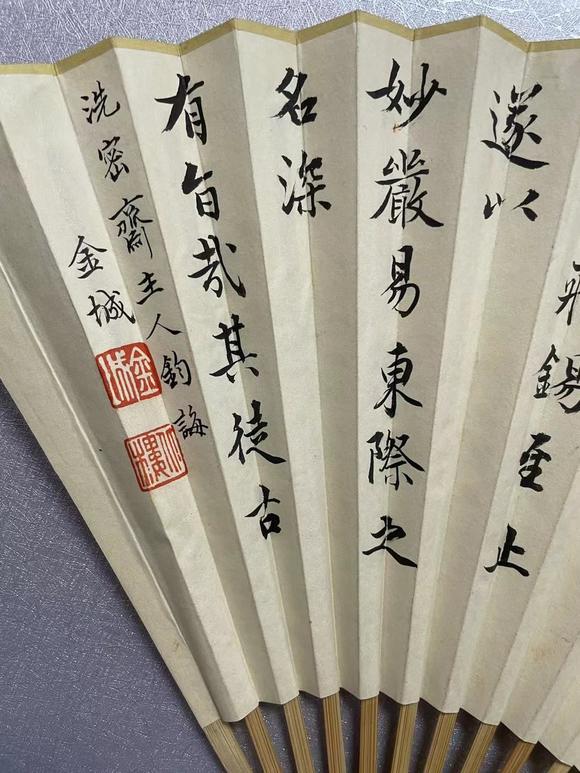 飛錫至止
遂以
妙嚴易東際之
名深
有旨哉其徒古
洗密齋主人鈞誨
金城
金城
北樓